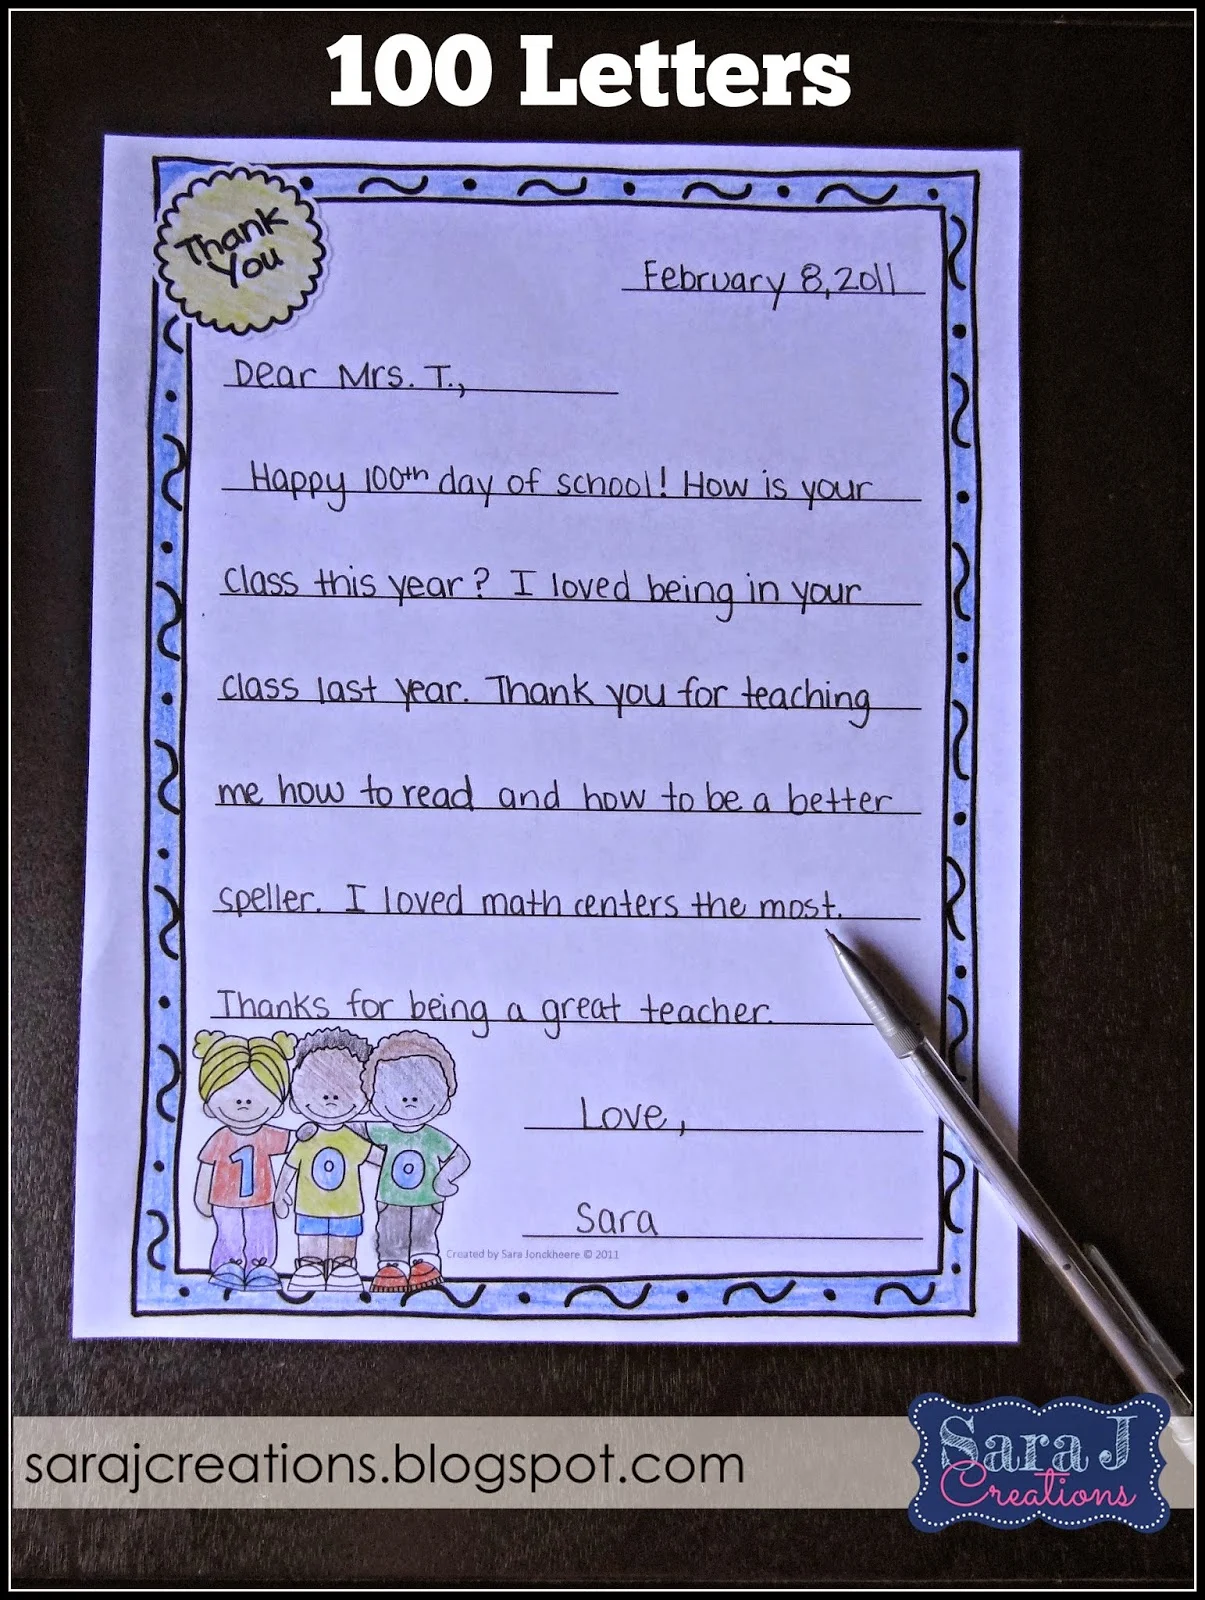 100 Letters
Thank
You
February 8, 2011
Dear Mrs. T.,
Happy 100th day of school! How is your
class this year? I loved being in your
class last year. Thank you for teaching
me how to read and how to be a better
speller. I loved math centers the most.
Thanks for being a great teacher.
Love,
Sara
1 0 0
Created by Sara Jonckheere © 2011
sarajcreations.blogspot.com
Sara J
Creations